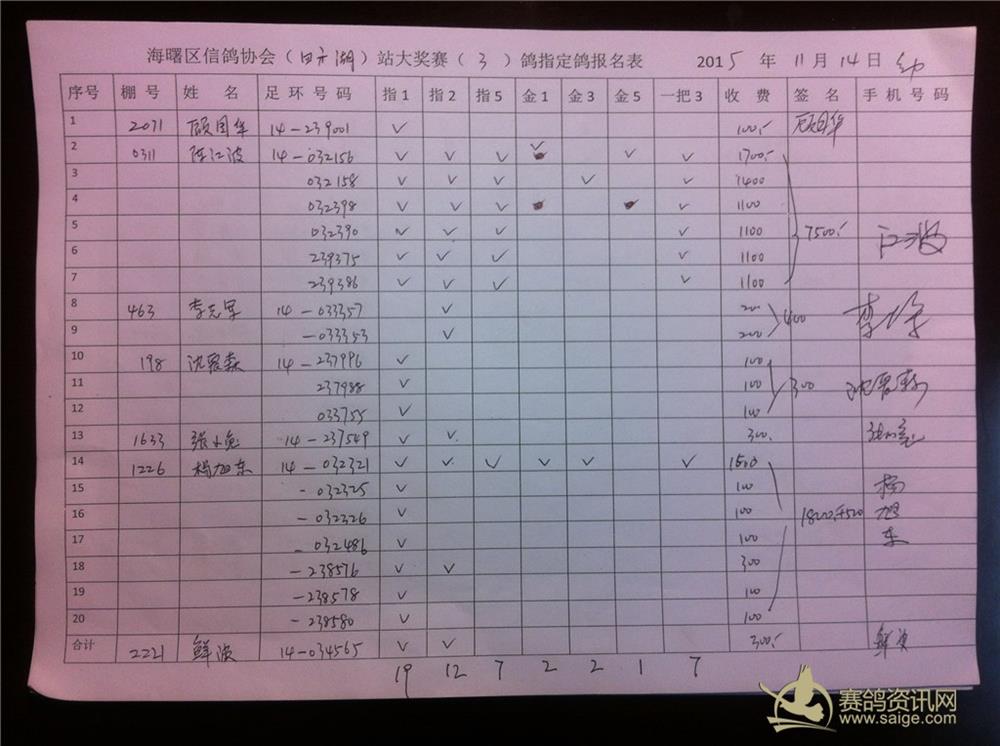 海曙区信鸽协会（ 湖）站大奖赛（ 3 ）鸽指定鸽报名表 2015 年 11 月 14 日
序号 棚 号 姓 名 足 环 号 码 指1 指2 指5 金1 金3 金5 一把3 收 费 签 名 手 机 号 码
1 2071 顾国华 14-239001 ✓ 100.- 顾国华
2 0311 陈江波 14-032156 ✓ ✓ ✓ ✓ ✓ ✓ 1700.-
3 032158 ✓ ✓ ✓ ✓ ✓ 1400
4 032398 ✓ ✓ ✓ ✓ 1100
5 032390 ✓ ✓ ✓ ✓ 1100 7500.- 江波
6 239375 ✓ ✓ ✓ ✓ 1100
7 239386 ✓ ✓ ✓ ✓ 1100
8 463 李 军 14-033357 ✓ 200 400 李
9 -033353 ✓ 200
10 198 沈 森 14-237996 ✓ 100
11 237988 ✓ 100 300 沈
12 033755 ✓ 100
13 1633 张小 14-237549 ✓ ✓ 300.
14 1226 杨旭东 14-032321 ✓ ✓ ✓ ✓ ✓ ✓ 1500
15 -032325 ✓ 100 杨
16 -032326 ✓ 100 旭
17 -032486 ✓ 100 东
18 -238576 ✓ ✓ 300
19 -238578 ✓ 100
20 -238580 ✓ 100
合计 2221 鲜波 14-034565 ✓ ✓ 300.- 鲜波
19 12 7 2 2 1 7
赛鸽资讯网
www.saige.com